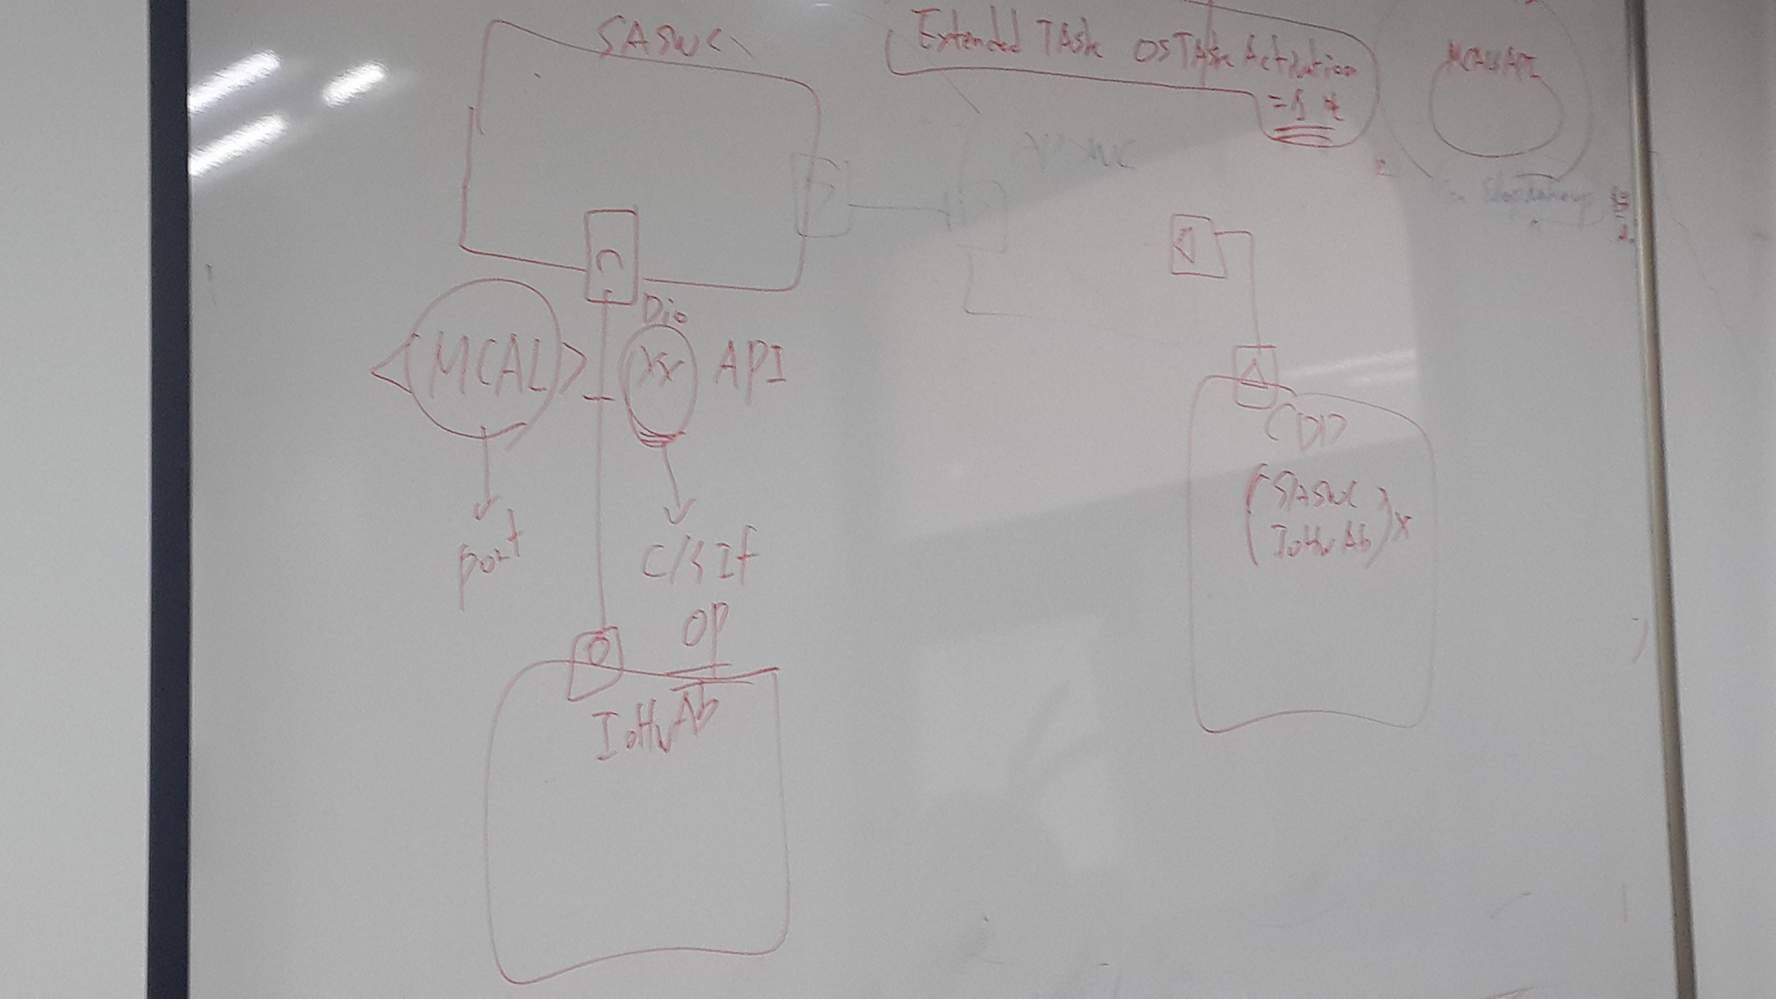 SASWC
Extended TAsk OS TAsk Activation
= 1
MCAL API
SWC
Dio
<MCAL>
xx
API
port
C/S If
OP
IoHwAb
CDD
(SASWC
IoHwAb) x